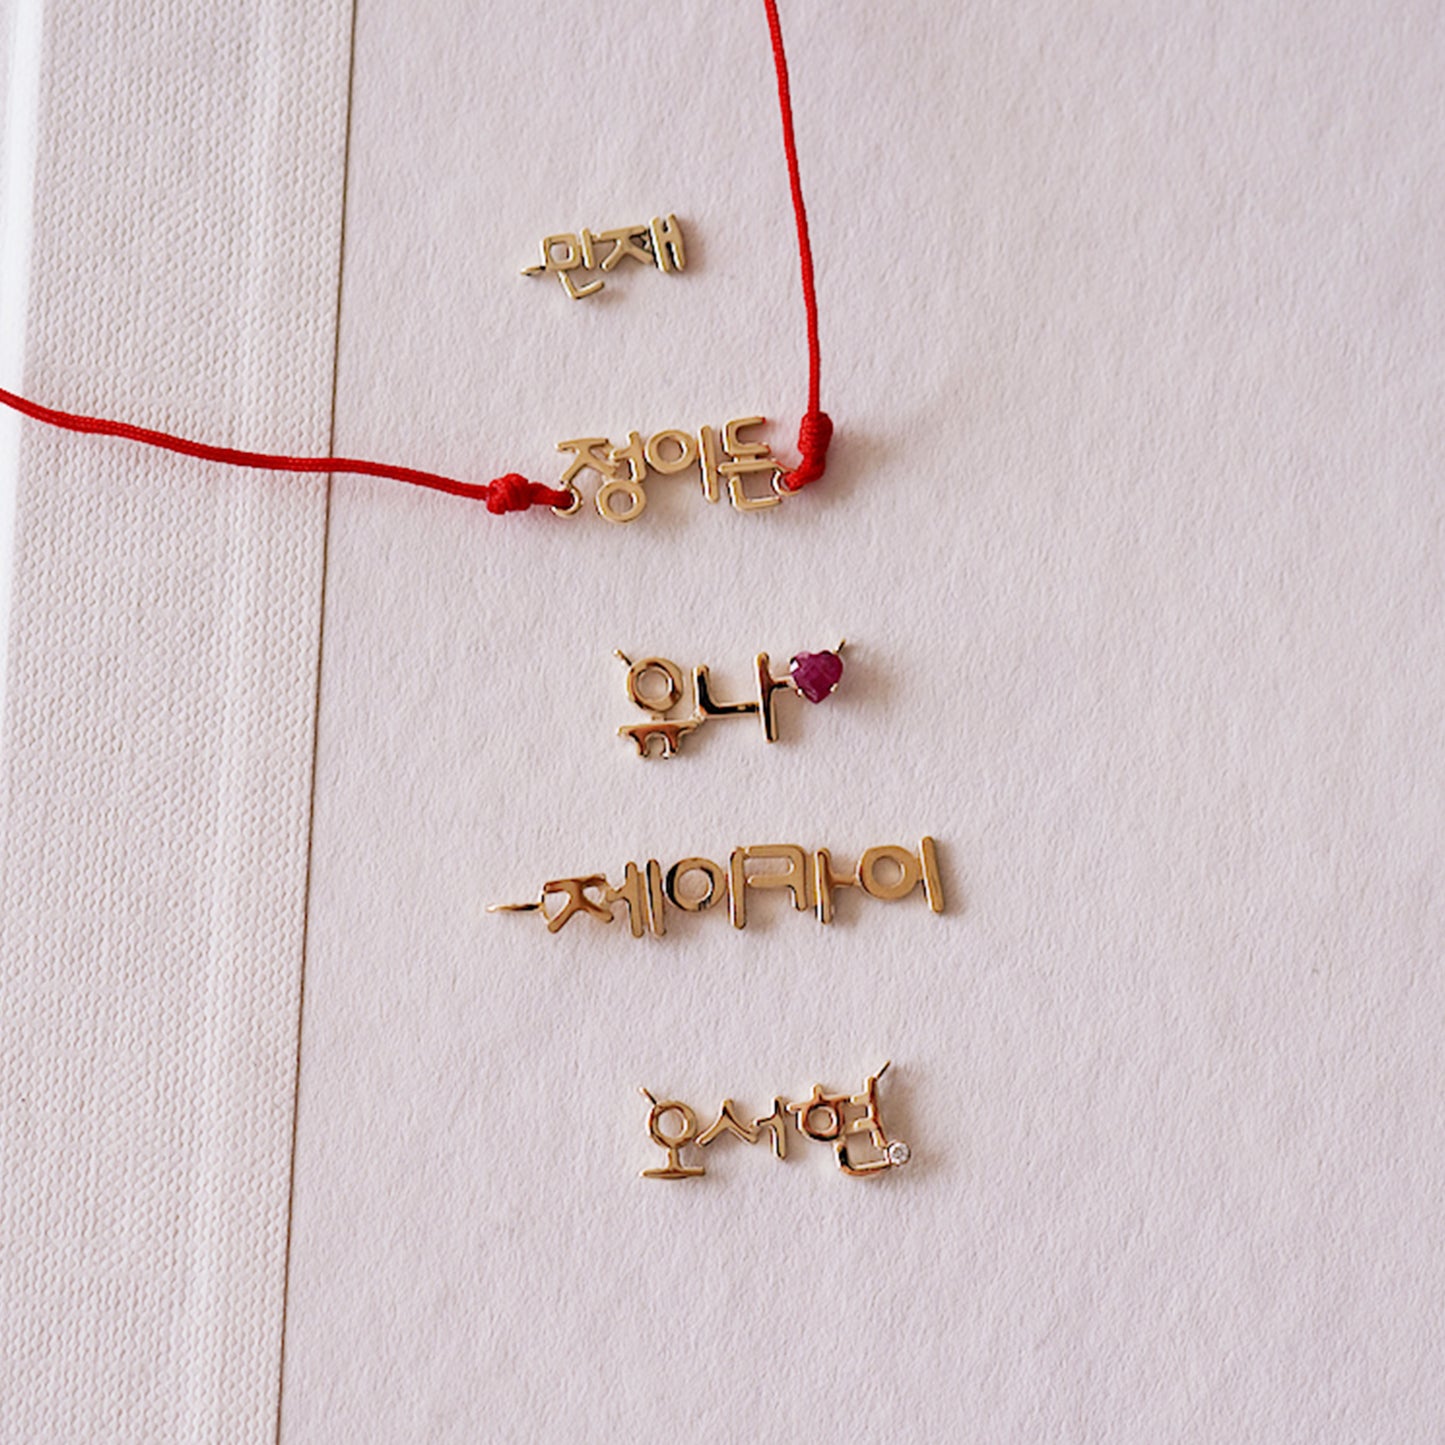 민재
정이번
윤나
제이카이
오서현